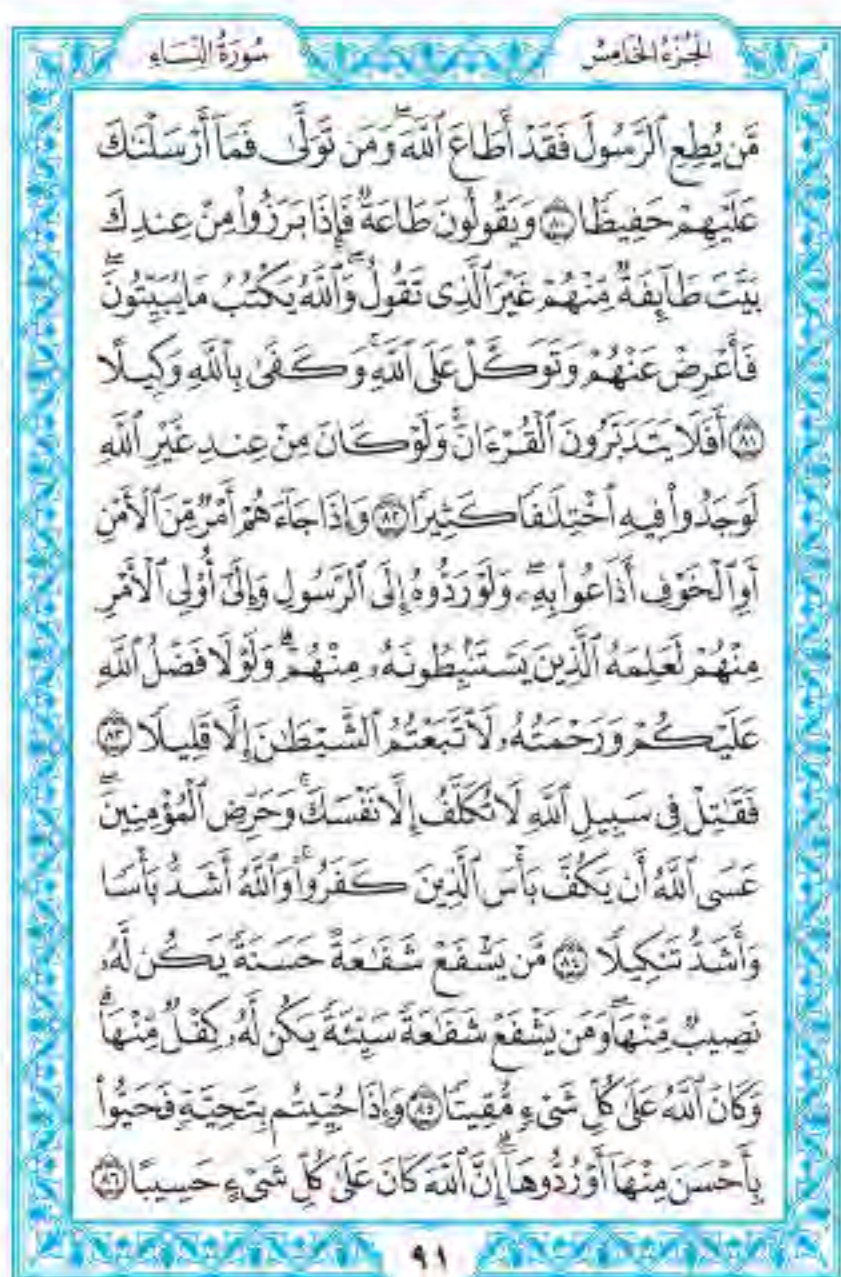 الجزء الخامس
سورة النساء
مَّن يُطِعِ ٱلرَّسُولَ فَقَدْ أَطَاعَ ٱللَّهَۖ وَمَن تَوَلَّىٰ فَمَآ أَرْسَلْنَٰكَ
عَلَيْهِمْ حَفِيظًا ۝٨٠ وَيَقُولُونَ طَاعَةٌ فَإِذَا بَرَزُوا۟ مِنْ عِندِكَ
بَيَّتَ طَآئِفَةٌ مِّنْهُمْ غَيْرَ ٱلَّذِى تَقُولُۖ وَٱللَّهُ يَكْتُبُ مَا يُبَيِّتُونَۖ
فَأَعْرِضْ عَنْهُمْ وَتَوَكَّلْ عَلَى ٱللَّهِۚ وَكَفَىٰ بِٱللَّهِ وَكِيلًا
۝٨١ أَفَلَا يَتَدَبَّرُونَ ٱلْقُرْءَانَۚ وَلَوْ كَانَ مِنْ عِندِ غَيْرِ ٱللَّهِ
لَوَجَدُوا۟ فِيهِ ٱخْتِلَٰفًا كَثِيرًا ۝٨٢ وَإِذَا جَآءَهُمْ أَمْرٌ مِّنَ ٱلْأَمْنِ
أَوِ ٱلْخَوْفِ أَذَاعُوا۟ بِهِۦۖ وَلَوْ رَدُّوهُ إِلَى ٱلرَّسُولِ وَإِلَىٰٓ أُو۟لِى ٱلْأَمْرِ
مِنْهُمْ لَعَلِمَهُ ٱلَّذِينَ يَسْتَنۢبِطُونَهُۥ مِنْهُمْۗ وَلَوْلَا فَضْلُ ٱللَّهِ
عَلَيْكُمْ وَرَحْمَتُهُۥ لَٱتَّبَعْتُمُ ٱلشَّيْطَٰنَ إِلَّا قَلِيلًا ۝٨٣
فَقَٰتِلْ فِى سَبِيلِ ٱللَّهِ لَا تُكَلَّفُ إِلَّا نَفْسَكَۚ وَحَرِّضِ ٱلْمُؤْمِنِينَۖ
عَسَى ٱللَّهُ أَن يَكُفَّ بَأْسَ ٱلَّذِينَ كَفَرُوا۟ۚ وَٱللَّهُ أَشَدُّ بَأْسًا
وَأَشَدُّ تَنكِيلًا ۝٨٤ مَّن يَشْفَعْ شَفَٰعَةً حَسَنَةً يَكُن لَّهُۥ
نَصِيبٌ مِّنْهَاۖ وَمَن يَشْفَعْ شَفَٰعَةً سَيِّئَةً يَكُن لَّهُۥ كِفْلٌ مِّنْهَاۗ
وَكَانَ ٱللَّهُ عَلَىٰ كُلِّ شَىْءٍ مُّقِيتًا ۝٨٥ وَإِذَا حُيِّيتُم بِتَحِيَّةٍ فَحَيُّوا۟
بِأَحْسَنَ مِنْهَآ أَوْ رُدُّوهَآۗ إِنَّ ٱللَّهَ كَانَ عَلَىٰ كُلِّ شَىْءٍ حَسِيبًا ۝٨٦
٩١